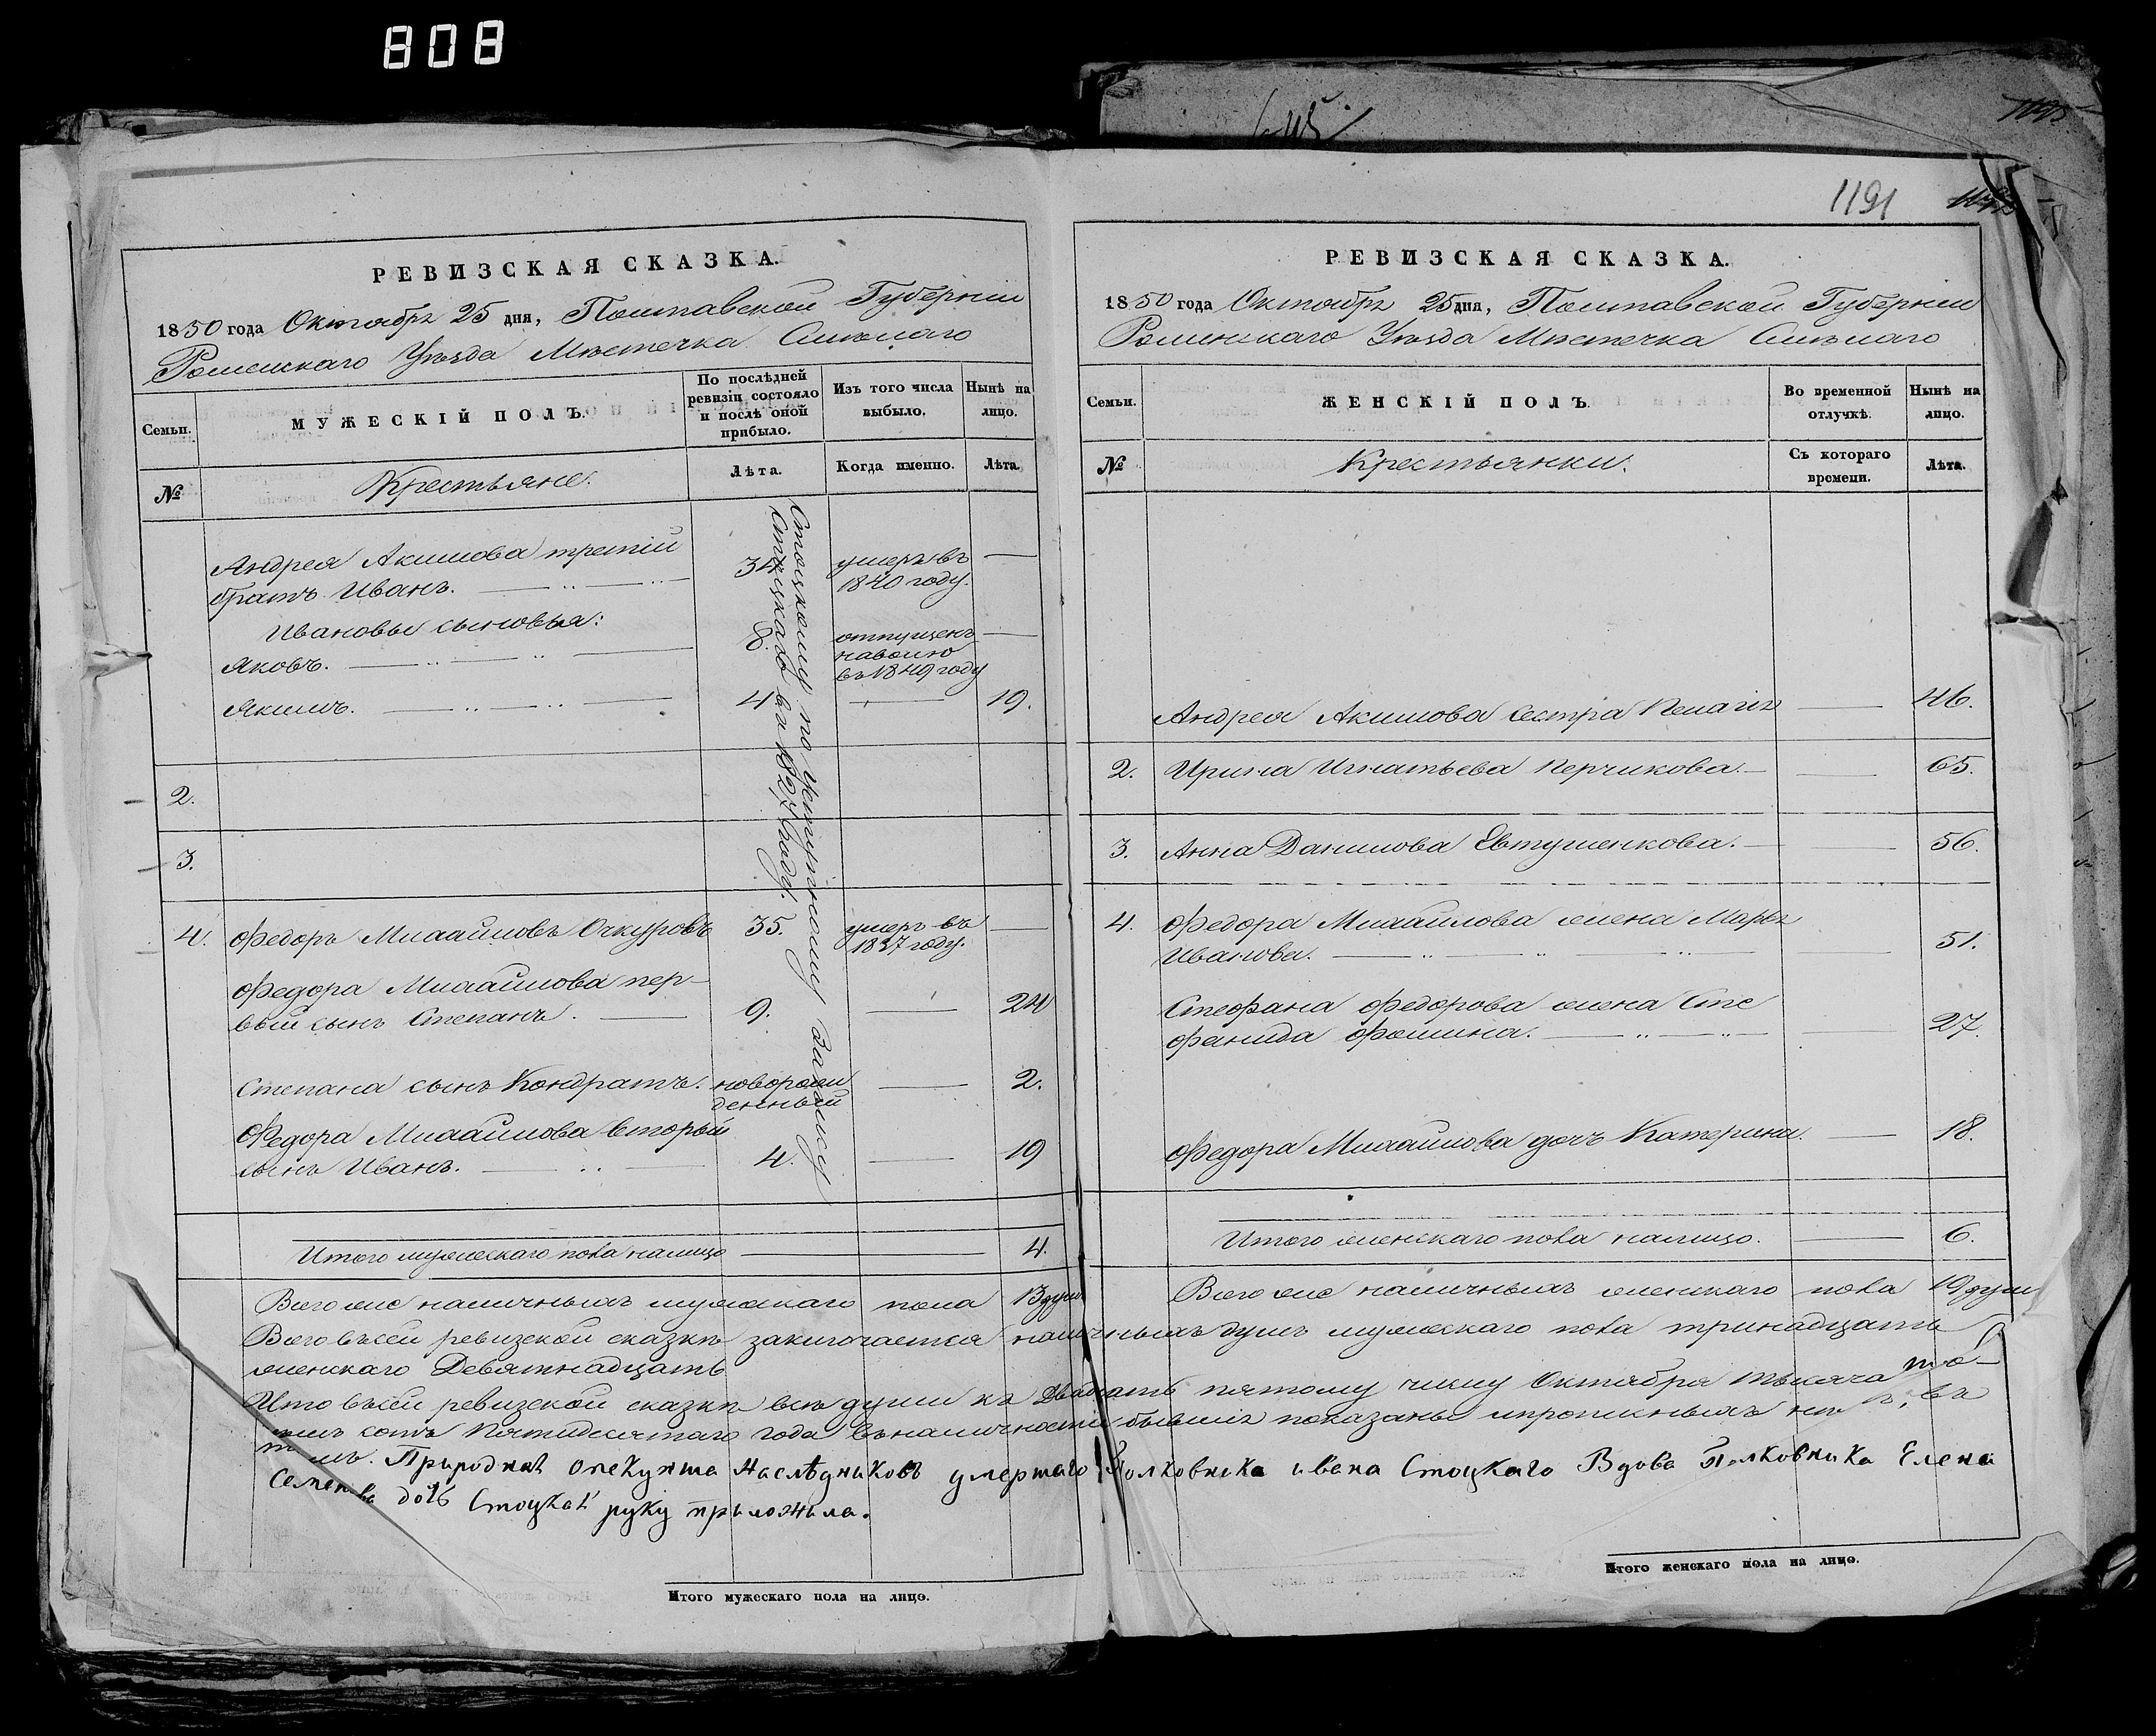 808
1191
РЕВИЗСКАЯ СКАЗКА.
1850 года Октября 25 дня, Полтавской Губерніи
Роменскаго Уѣзда Мѣстечка Смѣлаго
Семьи.
МУЖЕСКІЙ ПОЛЪ.
По послѣдней ревизіи состояло и послѣ оной прибыло.
Изъ того числа выбыло.
Нынѣ на лицо.
№
Крестьяне.
Лѣта.
Когда именно.
Лѣта.
Андрея Акимова третій
братъ Иванъ. 34 умеръ въ 1840 году.
Ивановы сыновья:
Яковъ. 8. отпущенъ на волю въ 1849 году
Якимъ. 4 19.
2.
3.
4. Федоръ Михайловъ Очкуровъ 35. умеръ въ 1837 году.
Федора Михайлова пер-
вый сынъ Степанъ. 9. 24
Степана сынъ Кондратъ. новорож денный 2.
Федора Михайлова вторый
сынъ Иванъ. 4. 19
Стоцкому по
Стоцкаго въ году.
Итого мужескаго пола налицо 4.
Всего же наличныхъ мужескаго пола 13 душъ
РЕВИЗСКАЯ СКАЗКА.
1850 года Октября 25 дня, Полтавской Губерніи
Роменскаго Уѣзда Мѣстечка Смѣлаго
Семьи.
ЖЕНСКІЙ ПОЛЪ.
Во временной отлучкѣ.
Нынѣ на лицо.
№
Крестьянки.
Съ котораго времени.
Лѣта.
Андрея Акимова сестра Пелагія 46.
2. Ирина Игнатьева Перчикова. 65.
3. Анна Данилова Евтушенкова. 56.
4. Федора Михайлова жена Марья
Иванова. 51.
Стефана Федорова жена Сте
фанида Фомина. 27.
Федора Михайлова дочь Катерина. 18.
Итого женскаго пола налицо. 6.
Всего же наличныхъ женскаго пола 19 душъ
Всего въ сей ревизской сказкѣ заключается наличныхъ душъ мужескаго пола тринадцать
женскаго Девятнадцать
Что въ сей ревизской сказкѣ всѣ души къ Двадцать пятому числу Октября тысяча
сотъ Пятидесятаго года въ наличности бывшіе показаны и прописныхъ нѣтъ, въ
томъ. Природная опекунша наслѣдниковъ умершаго Полковника ивана Стоцкаго Вдова Полковника Елена
Семенова дочь Стоцкая руку приложила.
Итого мужескаго пола на лицо.
Итого женскаго пола на лицо.